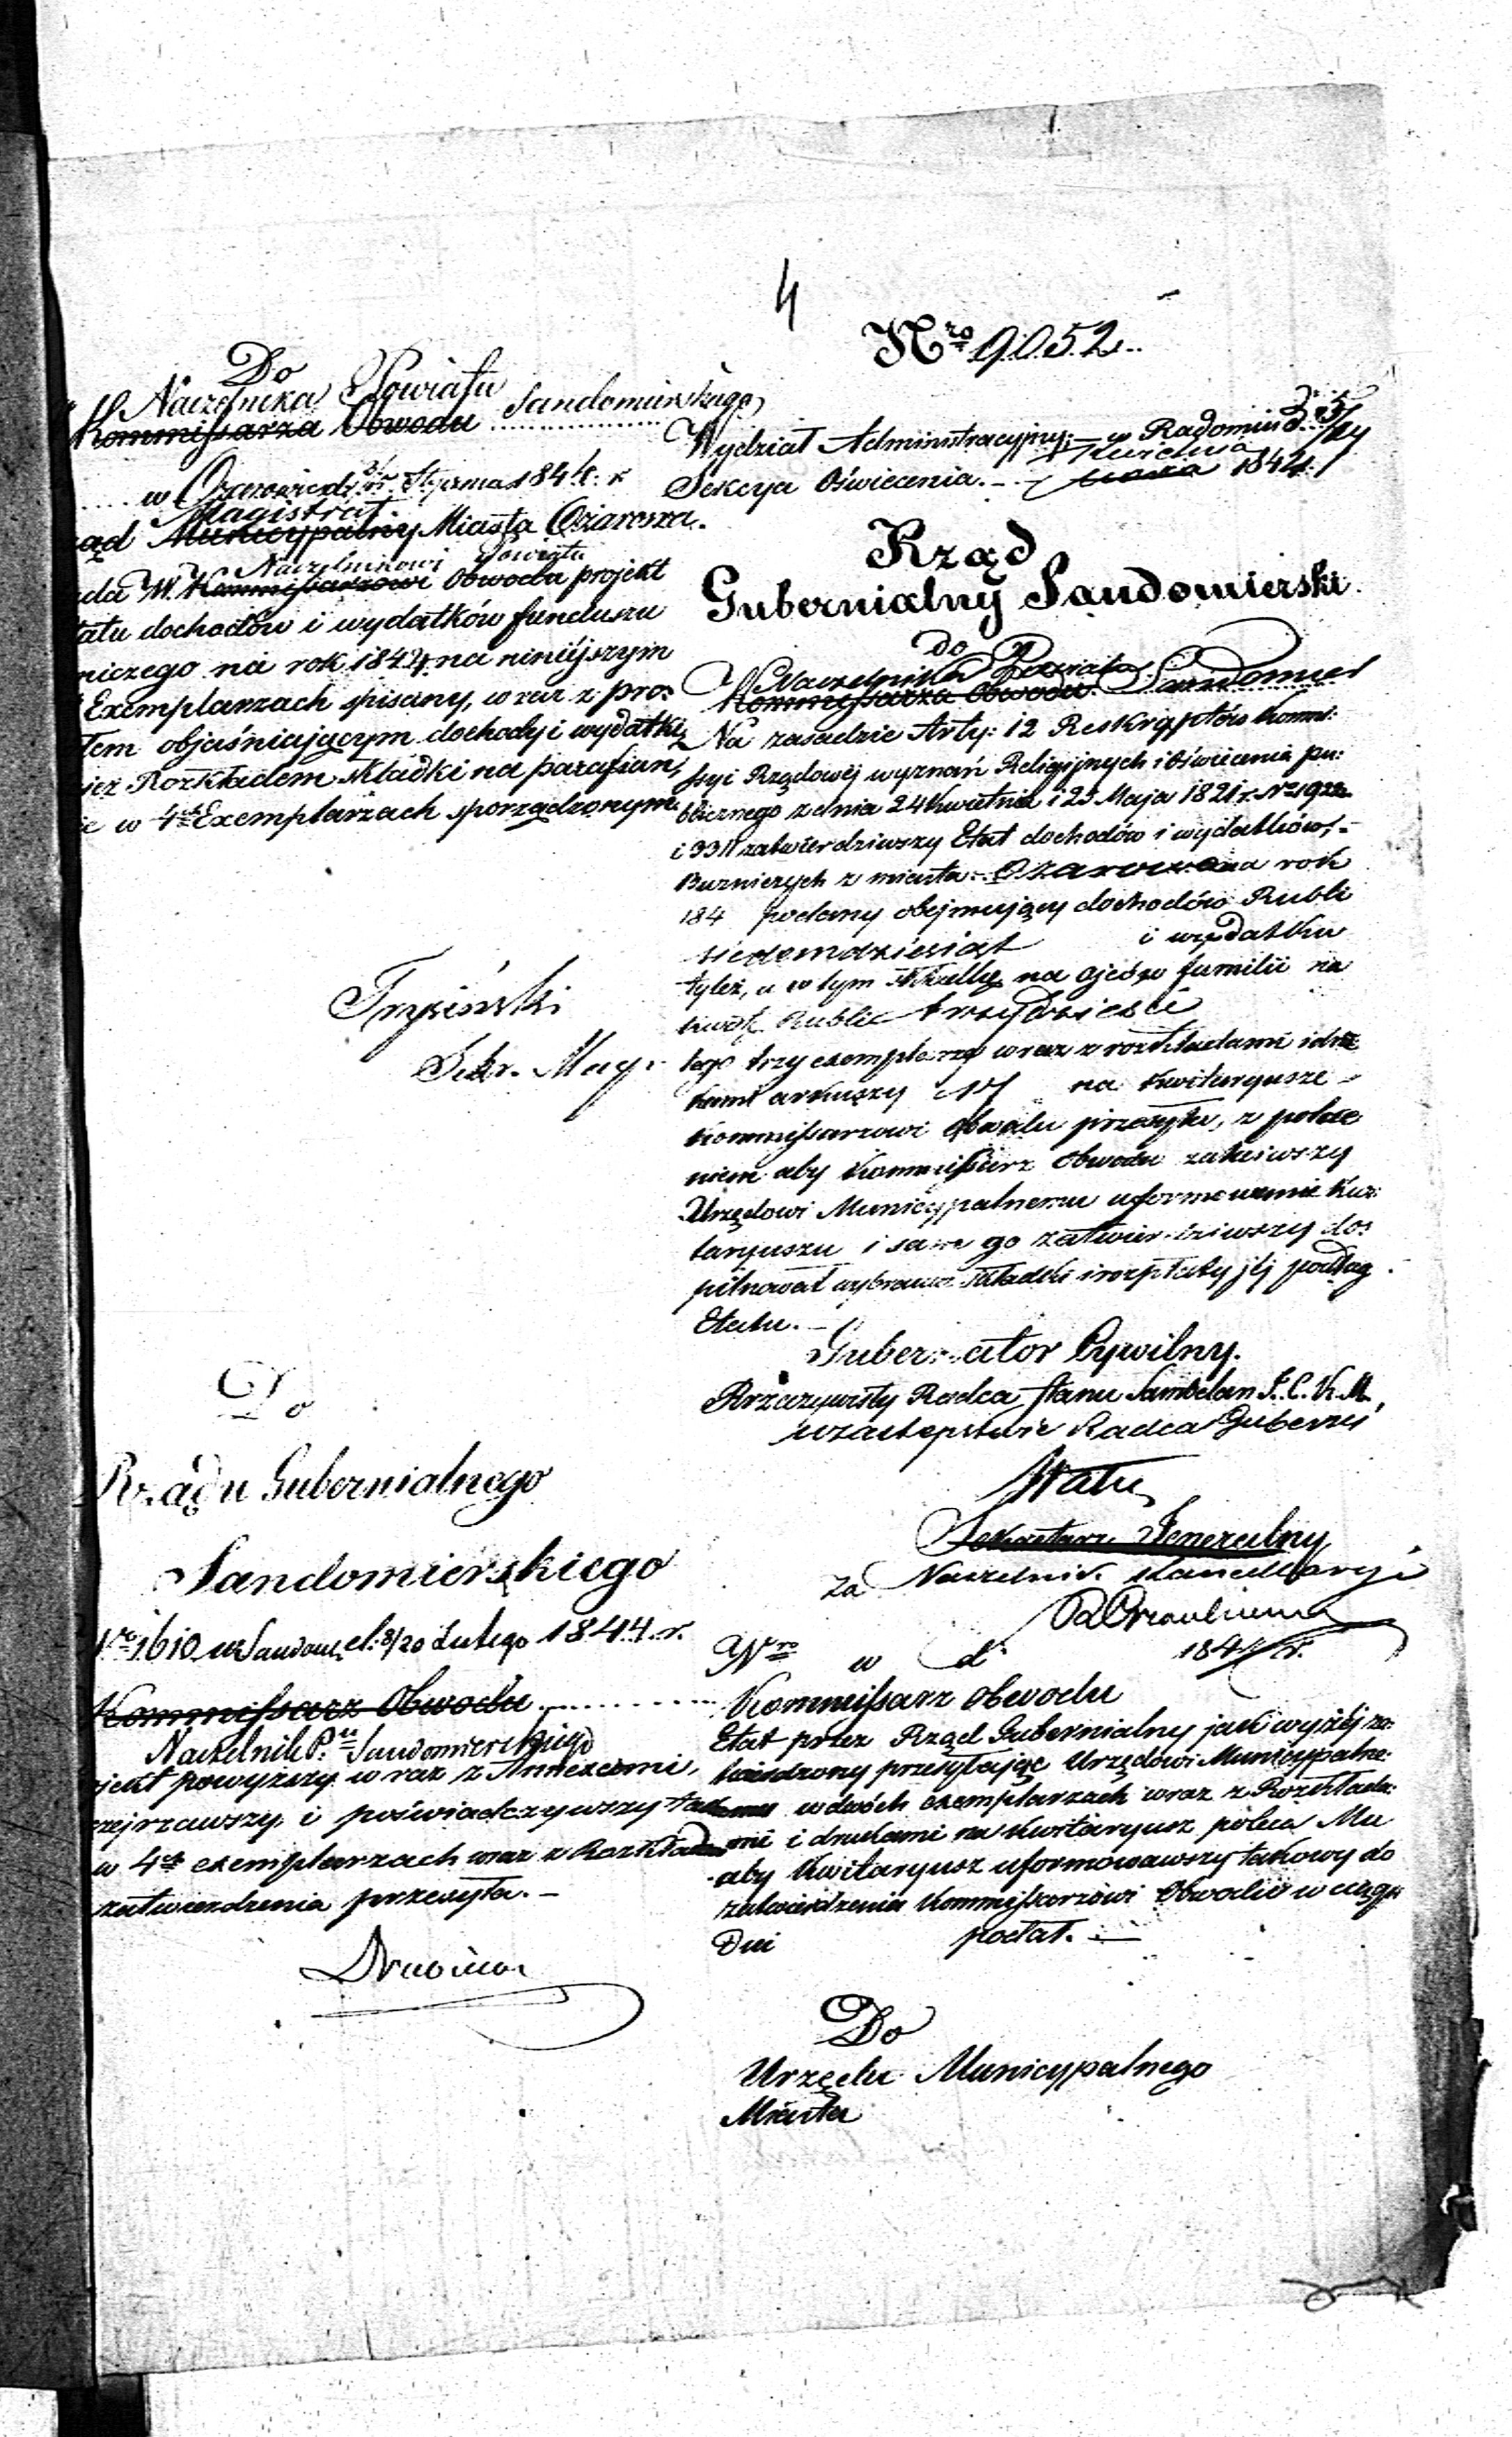 4
Do
Naczelnika Powiatu
Kommissarza Obwodu Sandomirskiego
w Ożarowie d. Stycznia 1844 r
Magistrat
ąd Municypalny Miasta Ożarowa.
Naczelnikowi Powiatu
ada W. Kommissarzowi Obwodu projekt
tatu dochodów i wydatków funduszu
niczego na rok 1844 na niniéjszym
Exemplarzach spisany, wraz z pro:
tem objaśniającym dochody i wydatki,
iéż Rozkładem Składki na parafian,
ie w 4ch Exemplarzach sporządzonym.
Sekr. Mag.
Do
Rządu Gubernialnego
Sandomierskiego
Nro 1610 w Sandom. d. 8/20 Lutego 1844 r.
Kommissarz Obwodu
Naczelnik P.tu Sandomierskiego
ojekt powyższy wraz z Annexami,
zejrzawszy i poświadczywszy
w 4ch exemplarzach wraz z Rozkładem
zatwierdzenia przesyła. –
Nro 9052.
Wydział Administracyjny. – w Radomiu d.
Kwietnia
Sekcya Oświecenia. – Marca 1844.
Rząd
Gubernialny Sandomierski.
Do
Naczelnika Powiatu
Kommissarza Obwodu Sandomier
Na zasadzie Arty: 12 Reskryptów Kommi:
ssyi Rządowéj wyznań Religijnych i Oświecenia pu:
blicznego z dnia 24 Kwietnia i 23 Maja 1821 r. No 1922
i 3311 zatwierdziwszy Etat dochodów i wydatków, –
Buzniczych z miasta Ożarowa na rok
184 podany obejmujący dochodów Rubli
siedemdziesiąt i wydatku
tyleż, a w tym składkę na ojców familii na
kwotę Rubli trzydzieści
tego trzy exemplarze wraz z rozkładami i dru
kami arkuszy No na kwitaryusze –
Kommissarzowi Obwodu przesyła, z polece
niem aby Kommissarz Obwodu zaleciwszy
Urzędowi Municypalnemu uformowanie Kwi:
taryuszu i sam go zatwierdziwszy do:
pilnował wybrania składki i rozpłaty jéj podług
Etatu. –
Gubernator Cywilny.
Rzeczywisty Radca Stanu Szambelan J. C. K. M.,
w zastępstwie Radca Gubern
Sekretarz Jeneralny
za Naczelnik Kancellaryi
Nro w d. 184 r.
Kommissarz Obwodu
Etat przez Rząd Gubernialny jak wyżéj za:
twierdzony przesyłając Urzędowi Municypalne:
mu w dwóch exemplarzach wraz z Rozkłada:
mi i drukami na kwitaryusz poleca Mu
aby Kwitaryusz uformowawszy takowy do
zatwierdzenia Kommissarzowi Obwodu w ciągu
Dni podał. –
Do
Urzędu Municypalnego
Miasta